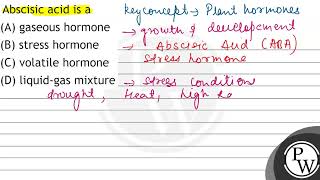 Abscisic acid is a
(A) gaseous hormone
(B) stress hormone
(C) volatile hormone
(D) liquid-gas mixture
key concept → Plant hormones
→ growth & development
→ Abscisic Acid (ABA)
stress hormone
→ stress conditions
drought, Heat, high
PW